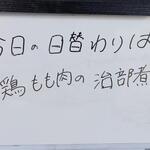 今日の日替わりは
鶏もも肉の治部煮